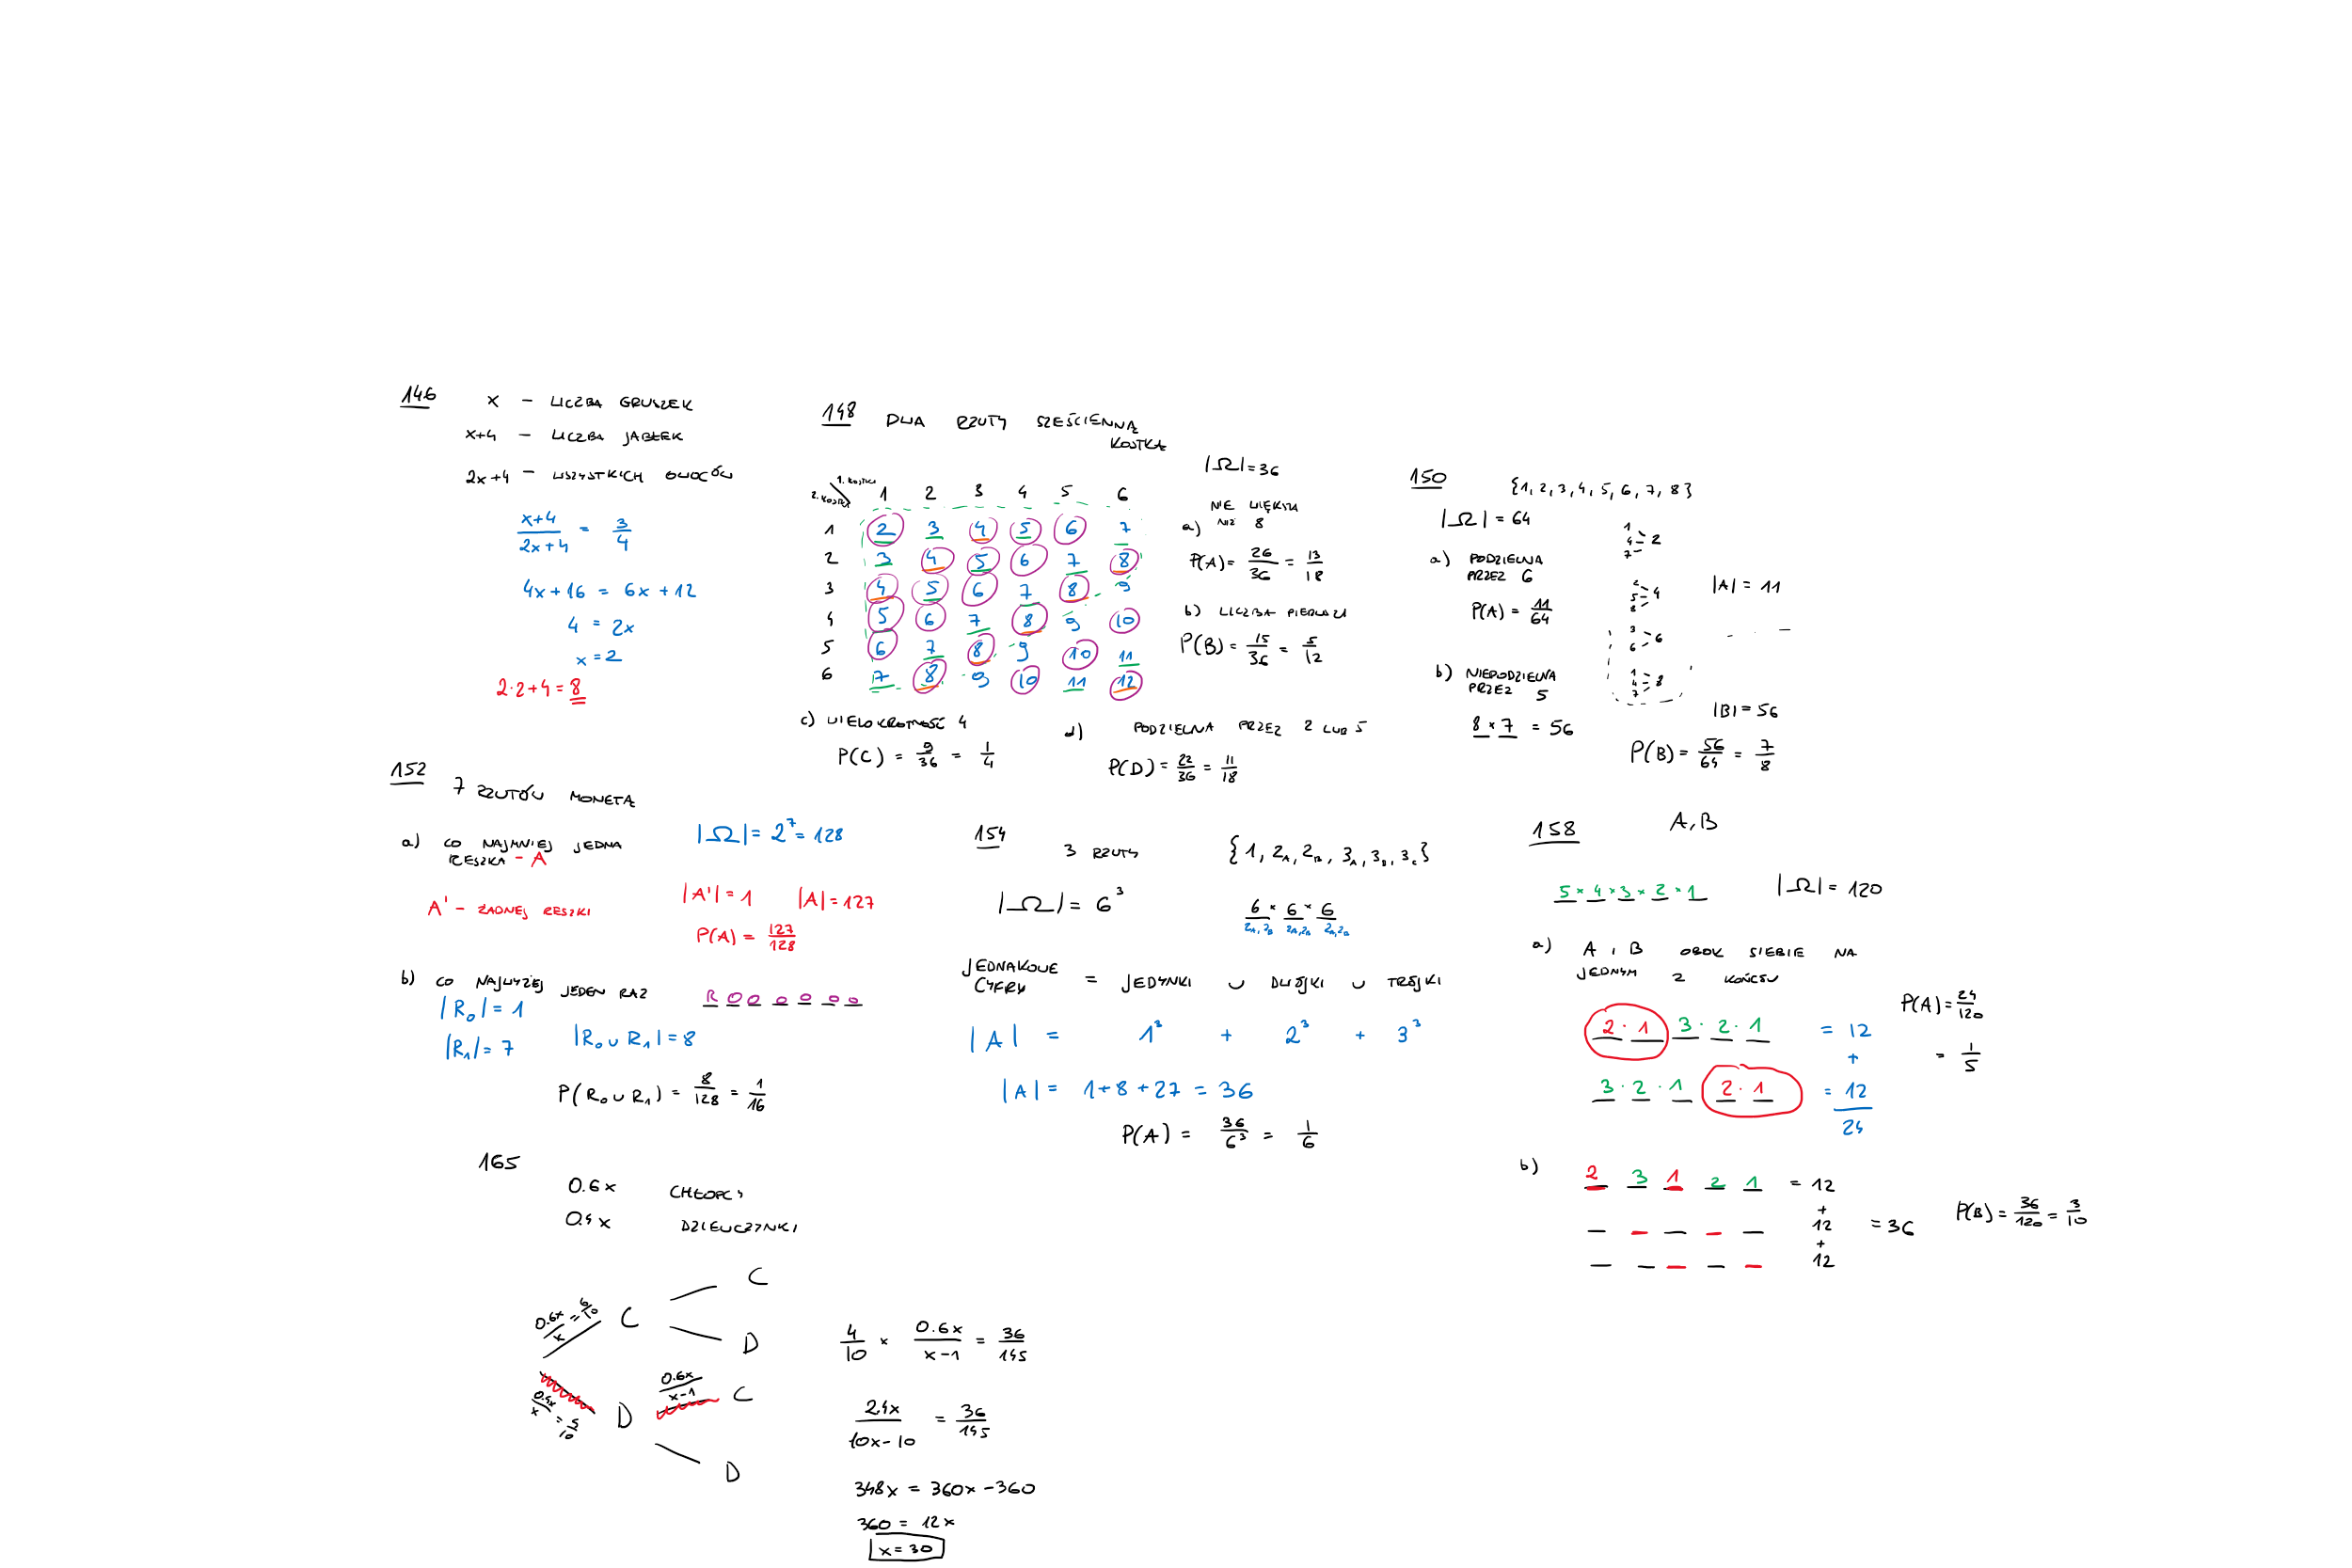 146
x – LICZBA GRUSZEK
x+4 – LICZBA JABŁEK
2x+4 – WSZYSTKICH OWOCÓW
x+4 / 2x+4 = 3/4
4x+16 = 6x+12
4 = 2x
x = 2
2·2+4 = 8
148 DWA RZUTY SZEŚCIENNĄ
KOSTKĄ
1. KOSTKA
2. KOSTKA
1 2 3 4 5 6
1 2 3 4 5 6 7
2 3 4 5 6 7 8
3 4 5 6 7 8 9
4 5 6 7 8 9 10
5 6 7 8 9 10 11
6 7 8 9 10 11 12
|Ω| = 36
a) NIE WIĘKSZA
NIŻ 8
P(A) = 26/36 = 13/18
b) LICZBA PIERWSZA
P(B) = 15/36 = 5/12
c) WIELOKROTNOŚĆ 4
P(C) = 9/36 = 1/4
d) PODZIELNA PRZEZ 2 LUB 5
P(D) = 22/36 = 11/18
150
{1, 2, 3, 4, 5, 6, 7, 8}
|Ω| = 64
a) PODZIELNA
PRZEZ 6
P(A) = 11/64
1
4 2
7
2
5 4
8
3
6 6
1
4 8
7
|A| = 11
b) NIEPODZIELNA
PRZEZ 5
8 × 7 = 56
|B| = 56
P(B) = 56/64 = 7/8
152
7 RZUTÓW MONETĄ
a) CO NAJMNIEJ JEDNA
RESZKA – A
|Ω| = 2⁷ = 128
A' – ŻADNEJ RESZKI
|A'| = 1 |A| = 127
P(A) = 127/128
b) CO NAJWYŻEJ JEDEN RAZ
R O O O O O O
|R₀| = 1
|R₁| = 7
|R₀ ∪ R₁| = 8
P(R₀ ∪ R₁) = 8/128 = 1/16
154
3 RZUTY
{1, 2A, 2B, 3A, 3B, 3C}
|Ω| = 6³
6 × 6 × 6
2A, 2B 2A, 2B 2A, 2B
JEDNAKOWE
CYFRY = JEDYNKI ∪ DWÓJKI ∪ TRÓJKI
|A| = 1³ + 2³ + 3³
|A| = 1+8+27 = 36
P(A) = 36/6³ = 1/6
158
A, B
5 × 4 × 3 × 2 × 1
|Ω| = 120
a) A I B OBOK SIEBIE NA
JEDNYM Z KOŃCÓW
2 · 1 3 · 2 · 1 = 12
+
3 · 2 · 1 2 · 1 = 12
24
P(A) = 24/120
= 1/5
b) 2 3 1 2 1 = 12
+
12
+
12
= 36
P(B) = 36/120 = 3/10
165
0.6x CHŁOPCY
0.4x DZIEWCZYNKI
0.6x/x = 6/10
C
C
D
0.4x/x = 4/10
D
0.6x/x-1
C
D
4/10 × 0.6x/x-1 = 36/145
2.4x/10x-10 = 36/145
348x = 360x - 360
360 = 12x
x = 30